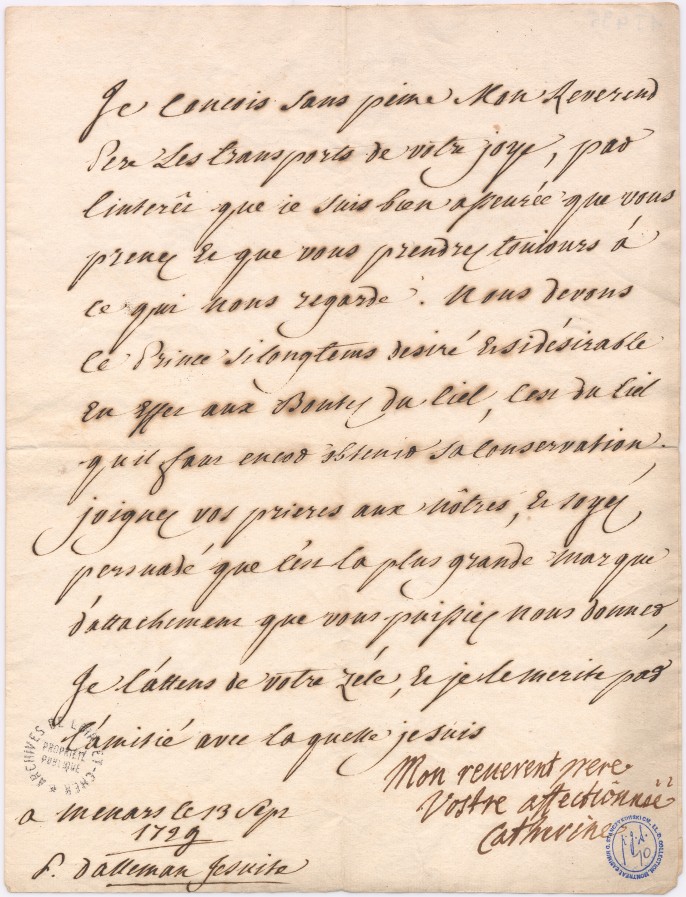 Je concois sans peine Mon Reverend
Pere Les transports de votre joye, par
l'interêt que je suis bien asseurée que vous
prenez Et que vous prendrez toujours à
ce qui nous regarde. Nous devons
ce Prince silongtems desiré Etsidésirable
En Effet aux Bontez du Ciel, C'est du Ciel
qu'il faut encor obtenir sa Conservation.
joignez vos prieres aux nôtres, Et soyez
persuadé que c'est la plus grande marque
d'attachement que vous puissiez nous donner,
Je l'attens de votre zéle, Et je le merite par
l'amitié avec laquelle je suis
Mon reuerent pere
Vostre affectionnée
Catherine
a menars le 13 Sepr
1729
P. dalleman Jesuite
ARCHIVES DE LOIR-ET-CHER
PROPRIÉTÉ
PUBLIQUE